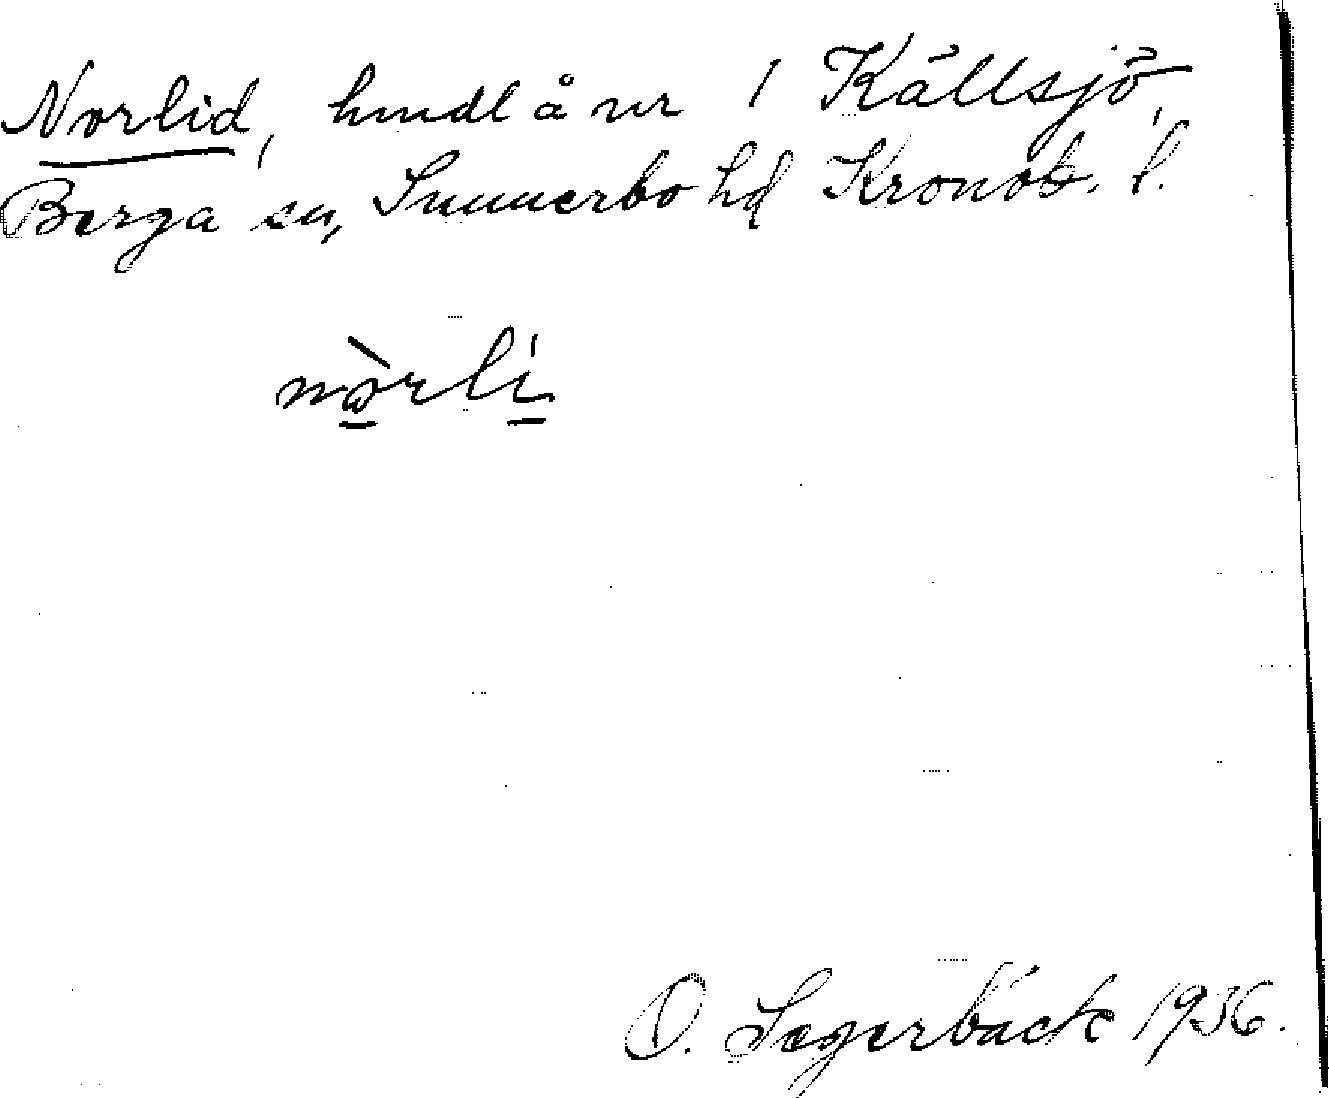 Norlid, hmdl å nr 1 Källsjö,
Berga sn, Sunnerbo hd Kronob. l.
nòrli
O. Segerbäck 1936.